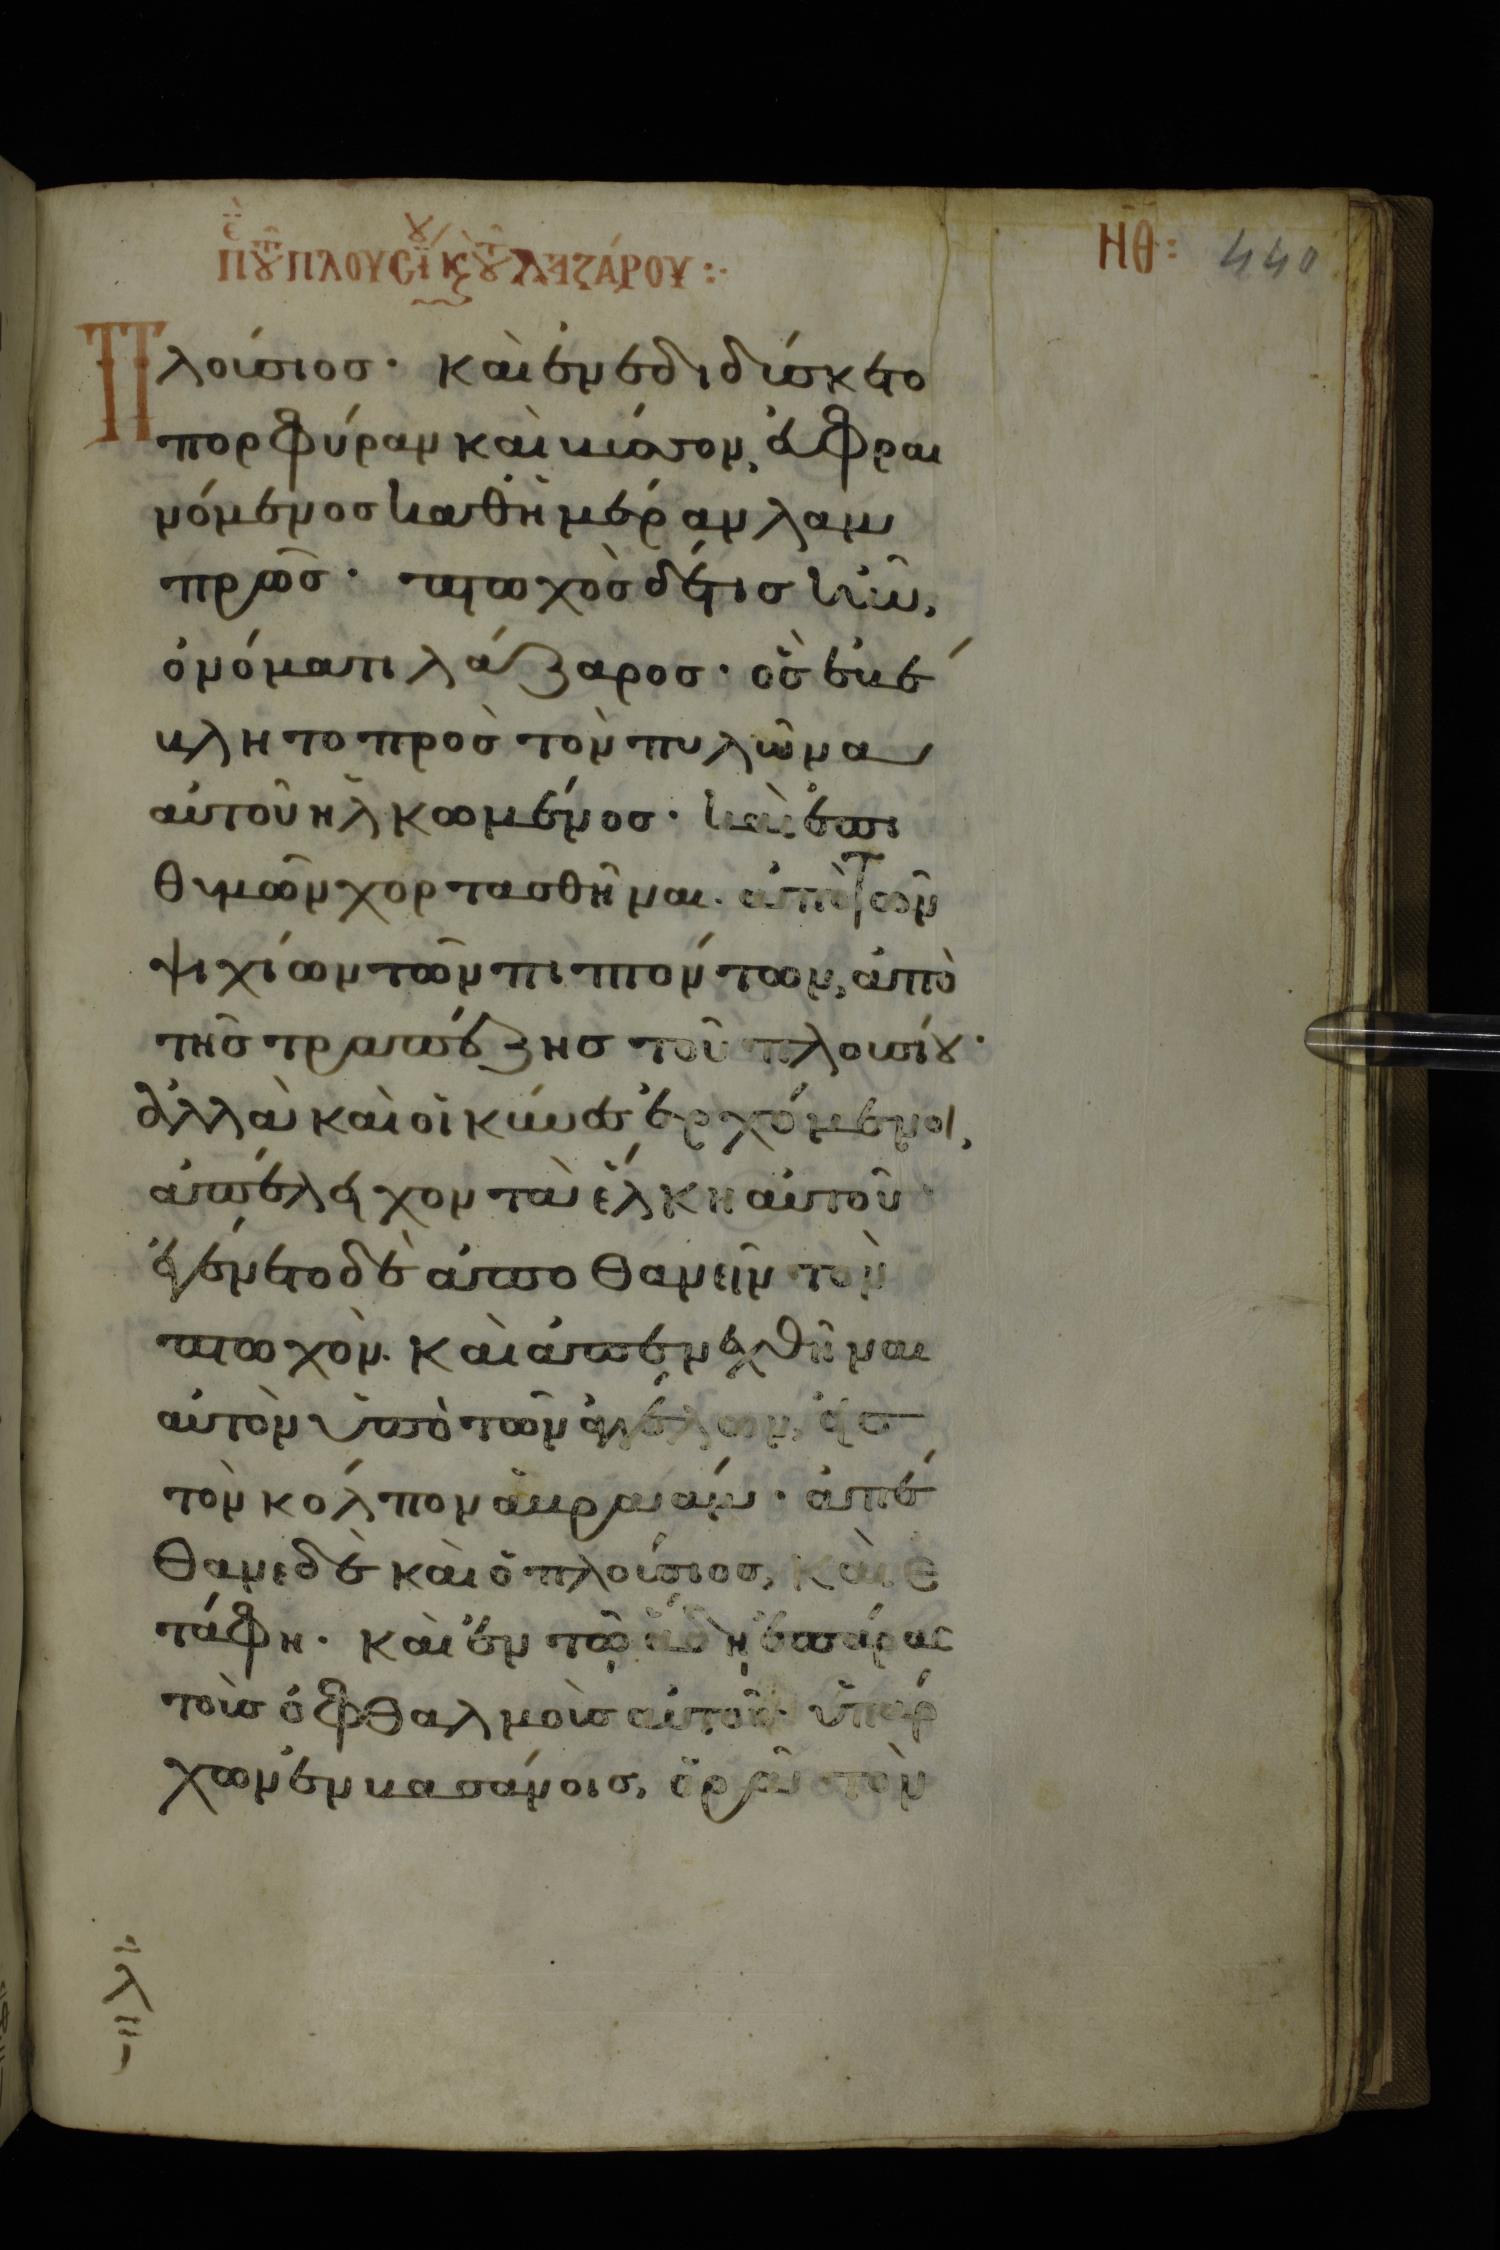 ΠῈΡ ΤΟΥ͂ ΠΛΟΥΣΪ́ΟΥ Κ(ΑῚ) ΤΟΥ͂ ΛΑΖΆΡΟΥ:· ΝΘ: 440
Πλούσιος· καὶ ἐνεδιδύσκετο
πορφύραν καὶ κύσσον, εὐφραι
νόμενος καθ ἡμέραν λαμ
πρῶς· πτωχὸς δέ τις ἦν,
ὀνόματι λάζαρος· ὃς ἐβέ
βλητο πρὸς τὸν πυλῶνα
αὐτοῦ ἡλκωμένος· καὶ ἐπι
θυμῶν χορτασθῆναι. ἀπὸ τῶν
ψιχίων τῶν πιπτόντων, ἀπὸ
τῆς τραπέζης τοῦ πλουσίου·
ἀλλὰ καὶ οἱ κύνες ἐρχόμενοι,
ἀπέλειχον τὰ ἕλκη αὐτοῦ·
ἐγένετο δὲ ἀποθανεῖν τὸν
πτωχὸν. καὶ ἀπενεχθῆναι
αὐτὸν ὑπὸ τῶν ἀγγέλων, εἰς
τὸν κόλπον ἀβραάμ· ἀπέ
θανε δὲ καὶ ὁ πλούσιος, καὶ ἐ
τάφη· καὶ ἐν τῷ ᾅδῃ ἐπάρας
τοὺς ὀφθαλμοὺς αὐτοῦ· ὑπάρ
χων ἐν βασάνοις, ὁρᾷ τὸν